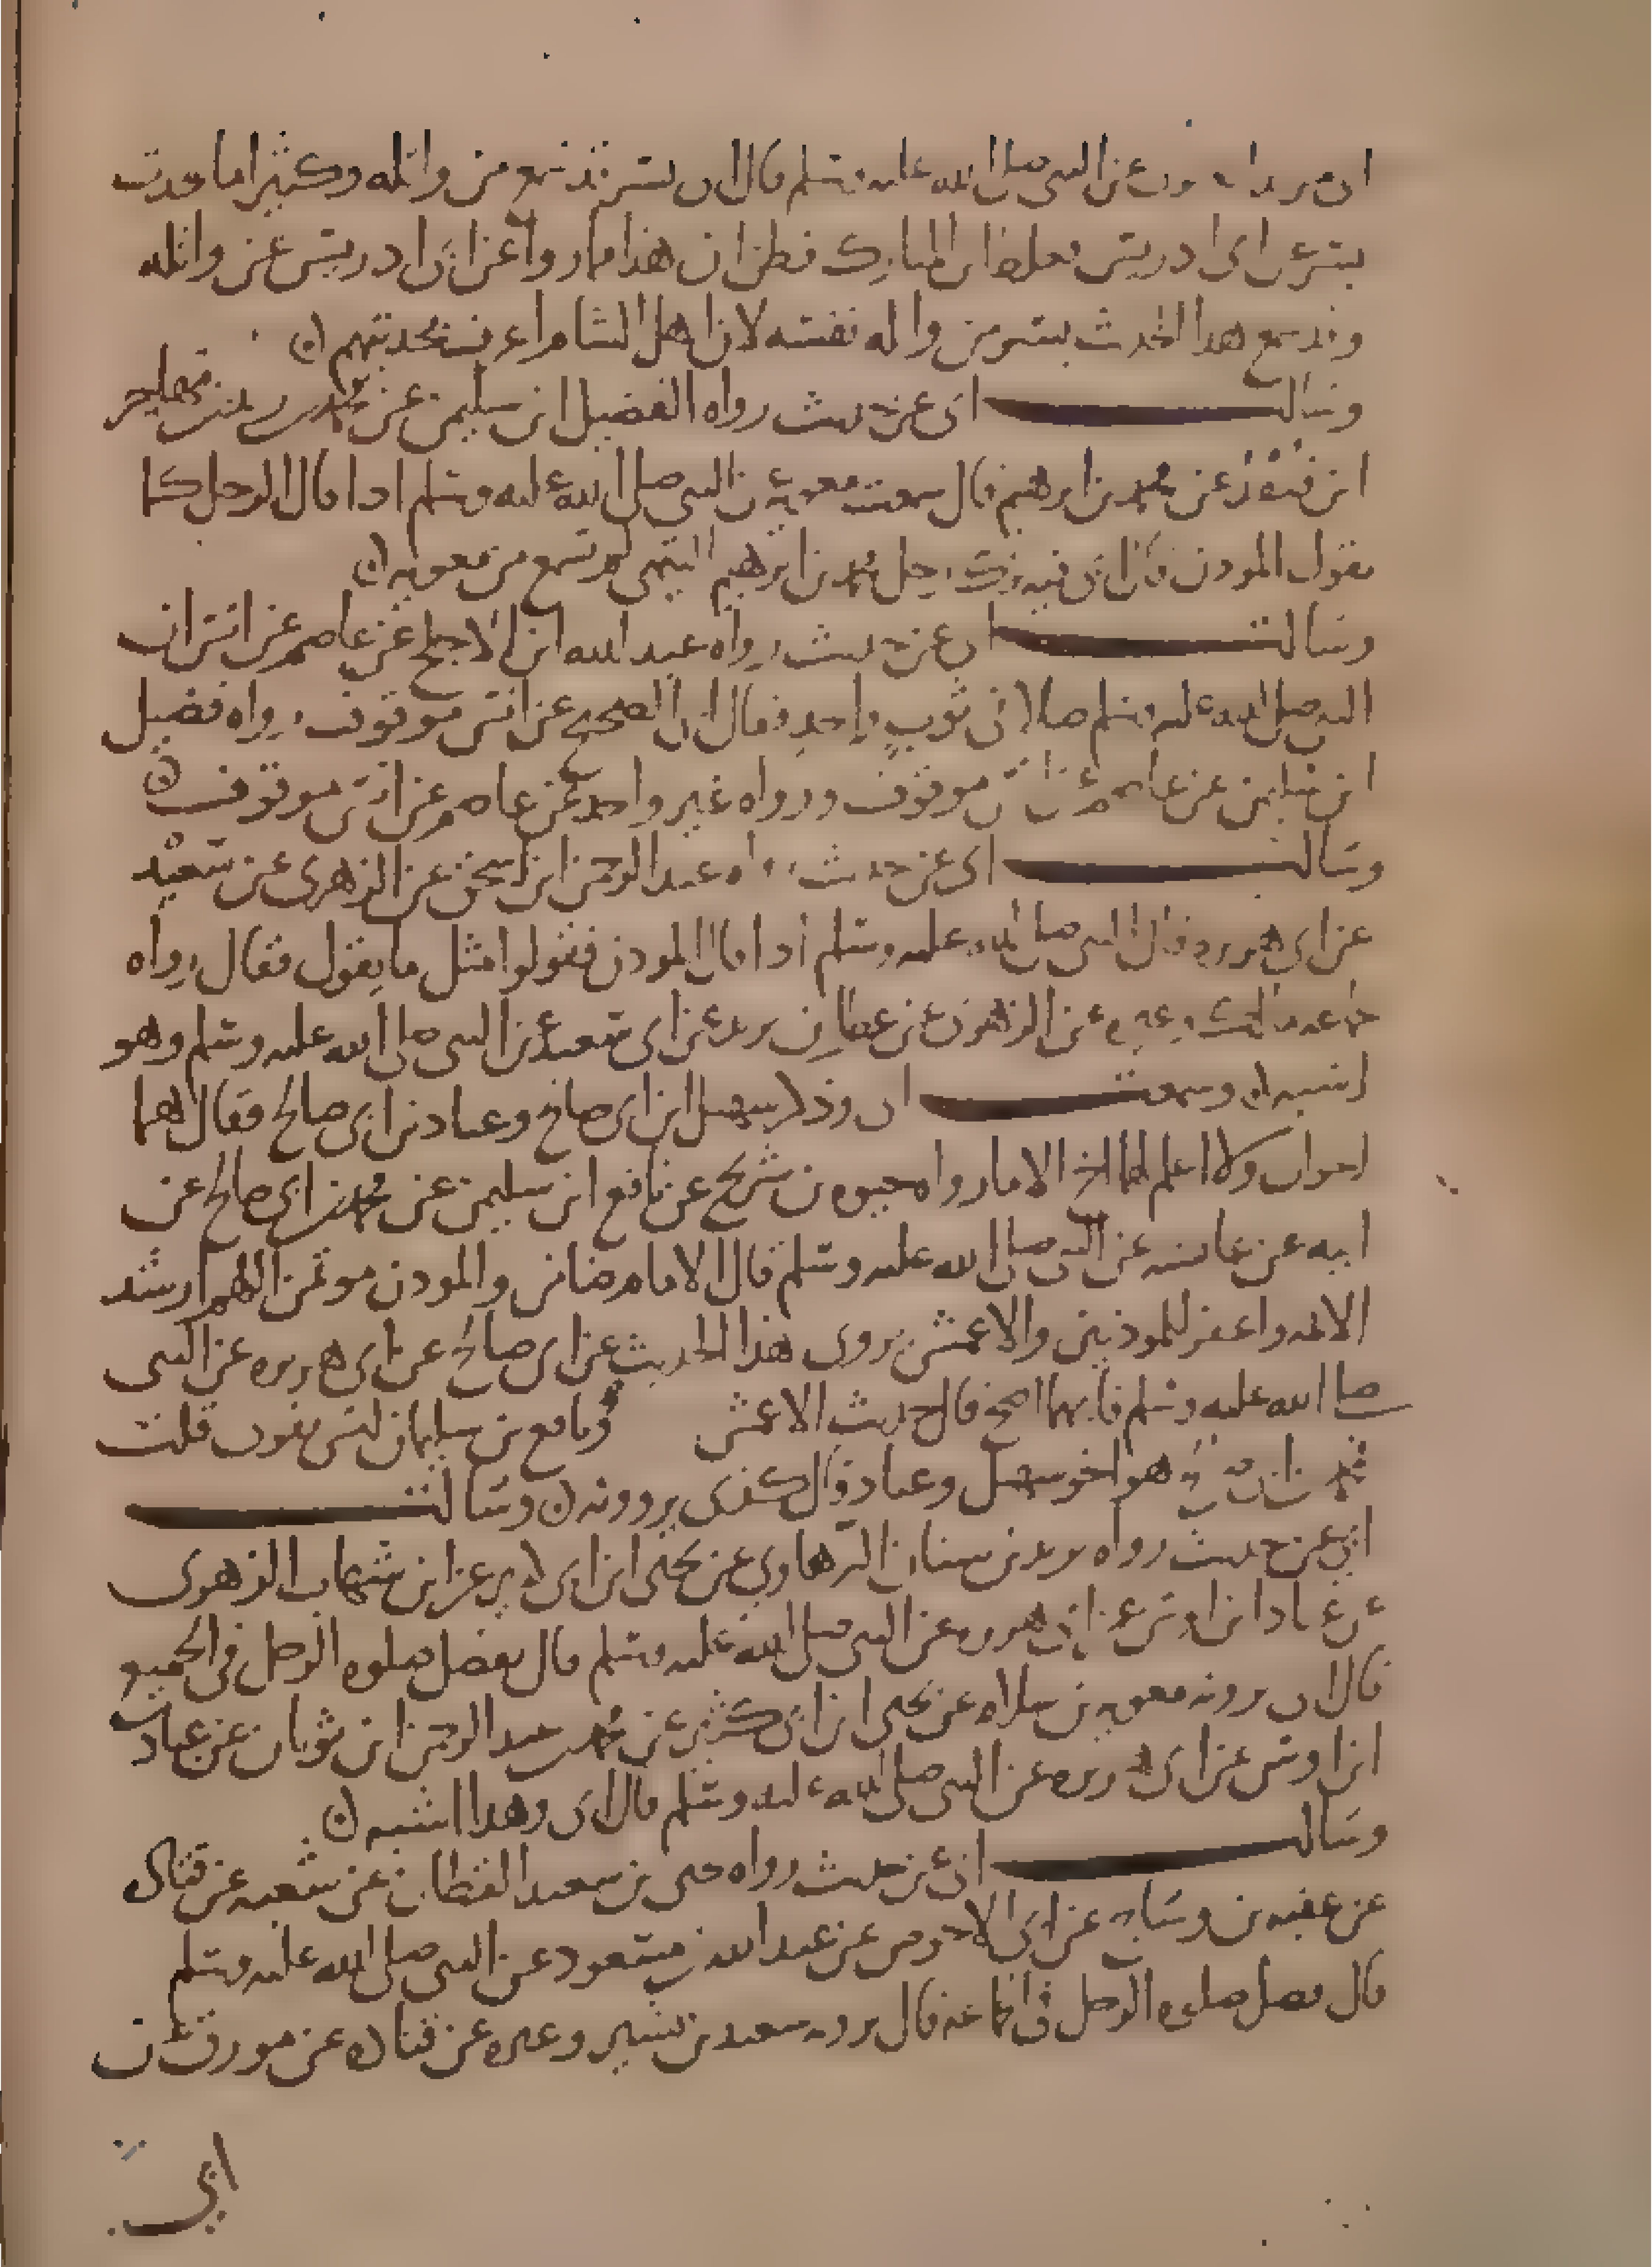 عن النبي صلى الله عليه وسلم قال ابي بسر قد سمع من واثلة وكثيرا ما يحدث
بسر عن ابي ادريس فغلط ابن المبارك فظن ان هذا مما روا عن ابي ادريس عن واثلة
وقد سمع هذا الحديث بسر من واثلة نفسه لان اهل الشام اعرف بحديثهم
وسالت ابي عن حديث رواه الفضيل ابن سليمن عن
ابن قنفذ عن محمد بن ابرهيم قال سمعت معوية عن النبي صلى الله عليه وسلم اذا قال الرجل كما
يقول الموذن قال ابي محمد بن ابرهيم التيمي لم يسمع من معوية
وسالت ابي عن حديث رواه عبد الله ابن الاجلح عن عاصم عن انس ان
النبي صلى الله عليه وسلم صلا في ثوب واحد فقال ابي الصحيح عن انس موقوف رواه فضيل
ابن سليمن عن عاصم عن انس موقوف ورواه غير واحد عن عاصم عن انس موقوف
وسالت ابي عن حديث رواه عبد الرحمن ابن اسحق عن الزهري عن سعيد
عن ابي هريرة قال النبي صلى الله عليه وسلم اذا قال الموذن فقولوا مثل ما يقول فقال رواه
جماعة مالك وغيره عن الزهري عن عطا بن يزيد عن ابي سعيد عن النبي صلى الله عليه وسلم وهو
اشبه وسمعت ابي وذكر سهيل ابن ابي صالح وعباد بن ابي صالح فقال هما
اخوان ولا اعلم لهما اخ الا ما رواه حيوة بن شريح عن نافع ابن سليمن عن محمد بن ابي صالح عن
ابيه عن عائشة عن النبي صلى الله عليه وسلم قال الامام ضامن والموذن موتمن اللهم ارشد
الائمة واغفر للموذنين والاعمش يروي هذا الحديث عن ابي صالح عن ابي هريرة عن النبي
صلى الله عليه وسلم فايهما اصح قال حديث الاعمش ونافع بن سليمان ليس بقوي قلت
محمد بن ابي صالح هو اخو سهيل وعباد قال كذى يروونه وسالت
ابي عن حديث رواه يزيد بن سنان الرهاوي عن يحيى ابن ابي كثير عن ابن شهاب الزهري
عن عباد ابن اوس عن ابي هريرة عن النبي صلى الله عليه وسلم قال تفضل صلوة الرجل في الجميع
قال ابي يرونه معوية بن سلام عن يحيى ابن ابي كثير عن محمد بن عبد الرحمن ابن ثوبان عن عباد
ابن اوس عن ابي هريرة عن النبي صلى الله عليه وسلم قال ابي وهذا اشبه
وسالت ابي عن حديث رواه يحيى بن سعيد القطان عن شعبة عن قتادة
عن عقبة بن وساج عن ابي الاحوص عن عبد الله بن مسعود عن النبي صلى الله عليه وسلم
قال فضل صلوة الرجل في الجماعة قال يرويه سعيد بن بشير وغيره عن قتادة عن مورق عن
ابي